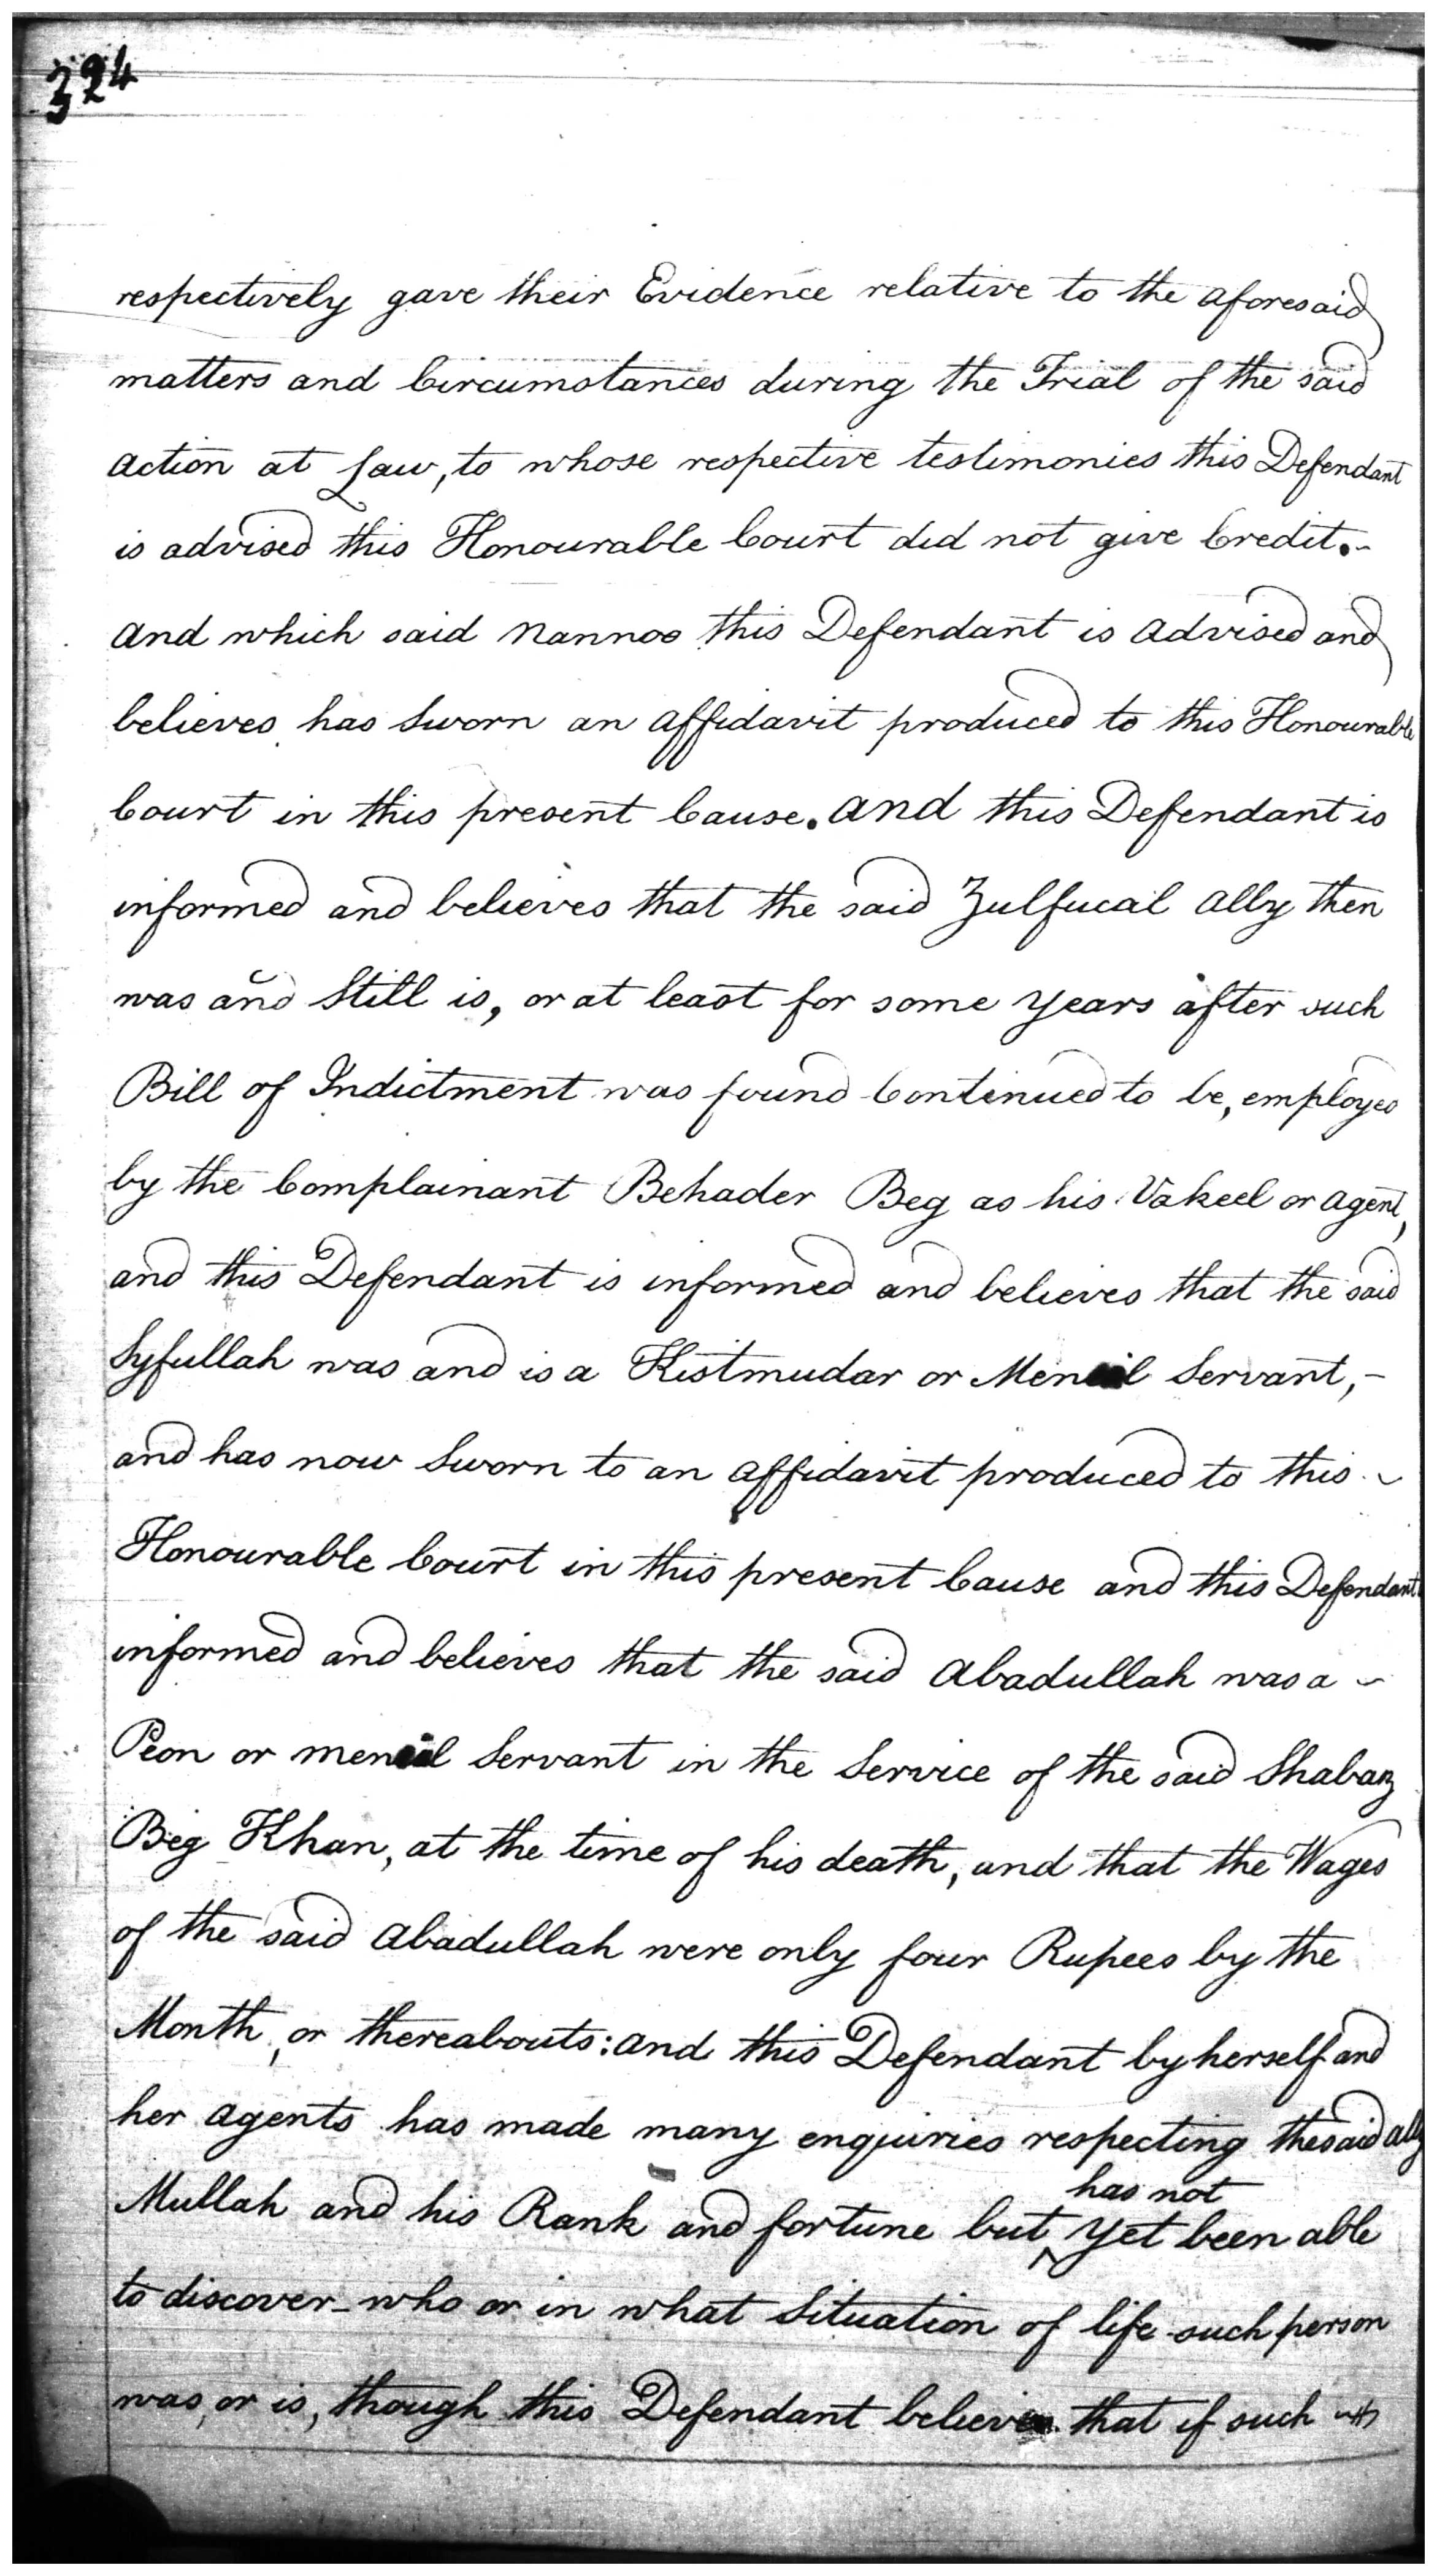 324
respectively gave their Evidence relative to the aforesaid
matters and Circumstances during the Trial of the said
action at Law, to whose respective testimonies this Defendant
is advised this Honourable Court did not give Credit.-
and which said Nannoo this Defendant is advised and
believes has Sworn an affidavit produced to this Honourable
Court in this present Cause. and this Defendant is
informed and believes that the said Zulfucal Ally then
was and Still is, or at least for some years after such
Bill of Indictment was found Continued to be, employed
by the Complainant Behader Beg as his Vakeel or agent,
and this Defendant is informed and believes that the said
Syfullah was and is a Kistmudar or Menial Servant,-
and has now Sworn to an affidavit produced to this
Honourable Court in this present Cause and this Defendant
informed and believes that the said Abadullah was a
Peon or menial Servant in the Service of the said Shabaz
Beg Khan, at the time of his death, and that the Wages
of the said Abadullah were only four Rupees by the
Month, or thereabouts: and this Defendant by herself and
her agents has made many enquiries respecting the said Ally
Mullah and his Rank and fortune but has not yet been able
to discover who or in what Situation of life such person
was, or is, though this Defendant believes that if such